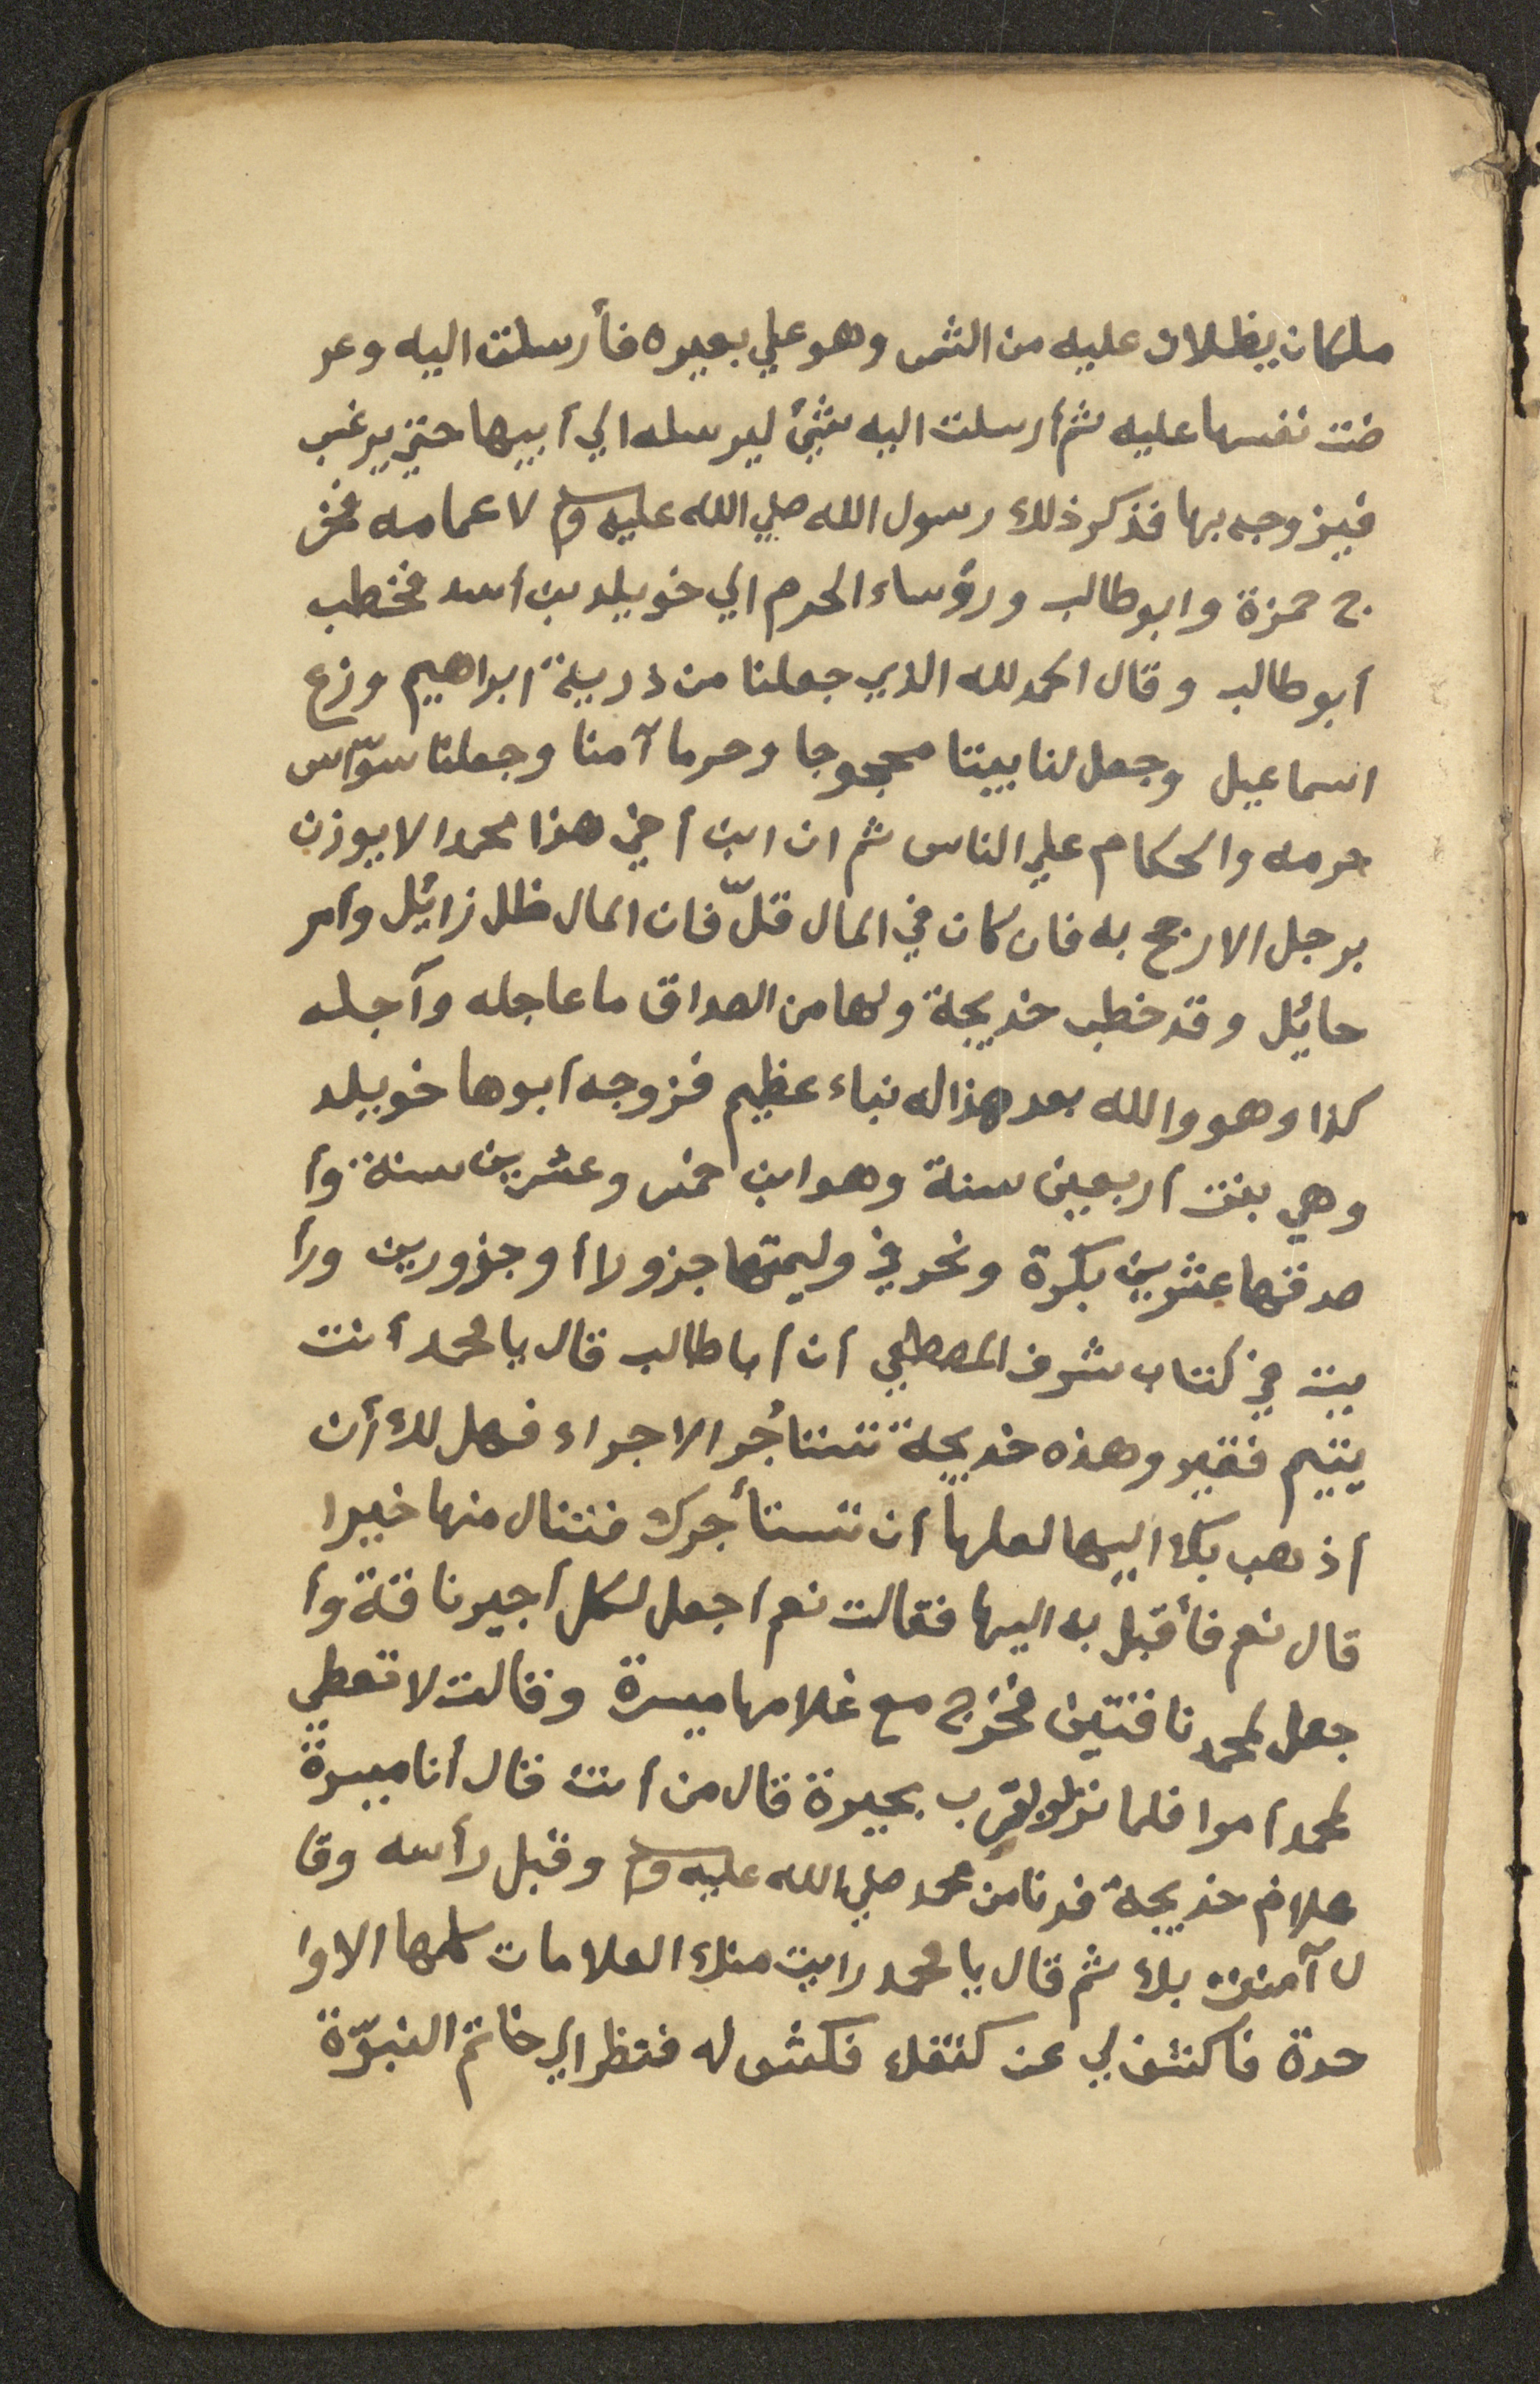 ملكان يظلان عليه من الشمس وهو علي بعيره فأرسلت اليه وعر
ضت نفسها عليه ثم أرسلت اليه شئ ليرسله الي أبيها حتي يرغب
فيزوجه بها فذكر ذلك رسول الله صلي الله عليه وسلم لاعمامه فخر
ج حمزة وابو طالب ورؤساء الحرم الي خويلد بن أسد فخطب
أبو طالب وقال الحمد لله الذي جعلنا من ذرية ابراهيم وزرع
اسماعيل وجعل لنا بيتا محجوجا وحرما آمنا وجعلنا سوّاس
حرمه والحكام علي الناس ثم ان ابن أخي هذا محمدا لا يوزن
برجل الا رجح به فان كان في المال قلّ فان المال ظل زائل وأمر
حائل وقد خطب خديجة ولها من الصداق ما عاجله وآجله
كذا وهو والله بعد هذا له نباء عظيم فزوجه أبوها خويلد
وهي بنت أربعين سنة وهو ابن خمس وعشرين سنة وأ
صدقها عشرين بكرة ونحر في وليمتها جزورا أو جزورين ورأ
يت في كتاب شرف المصطفي أن أبا طالب قال يا محمد أنت
يتيم فقير وهذه خديجة تستأجر الاجراء فهل لك أن
أذهب بك اليها لعلها أن تستأجرك فتنال منها خيرا
قال نعم فأقبل به اليها فقالت نعم اجعل لكل أجير ناقة وأ
جعل لمحمد ناقتين فخرج مع غلامها ميسرة وقالت لا تعطي
لمحمد أمرا فلما نزلو بقرب بحيرة قال من أنت قال أنا ميسرة
غلام خديجة فدنا من محمد صلي الله عليه وسلم وقبل رأسه وقا
ل آمنت بك ثم قال يا محمد رايت منك العلامات كلها الا وا
حدة فاكشف لي عن كتفك فكشف له فنظر الي خاتم النبوّة